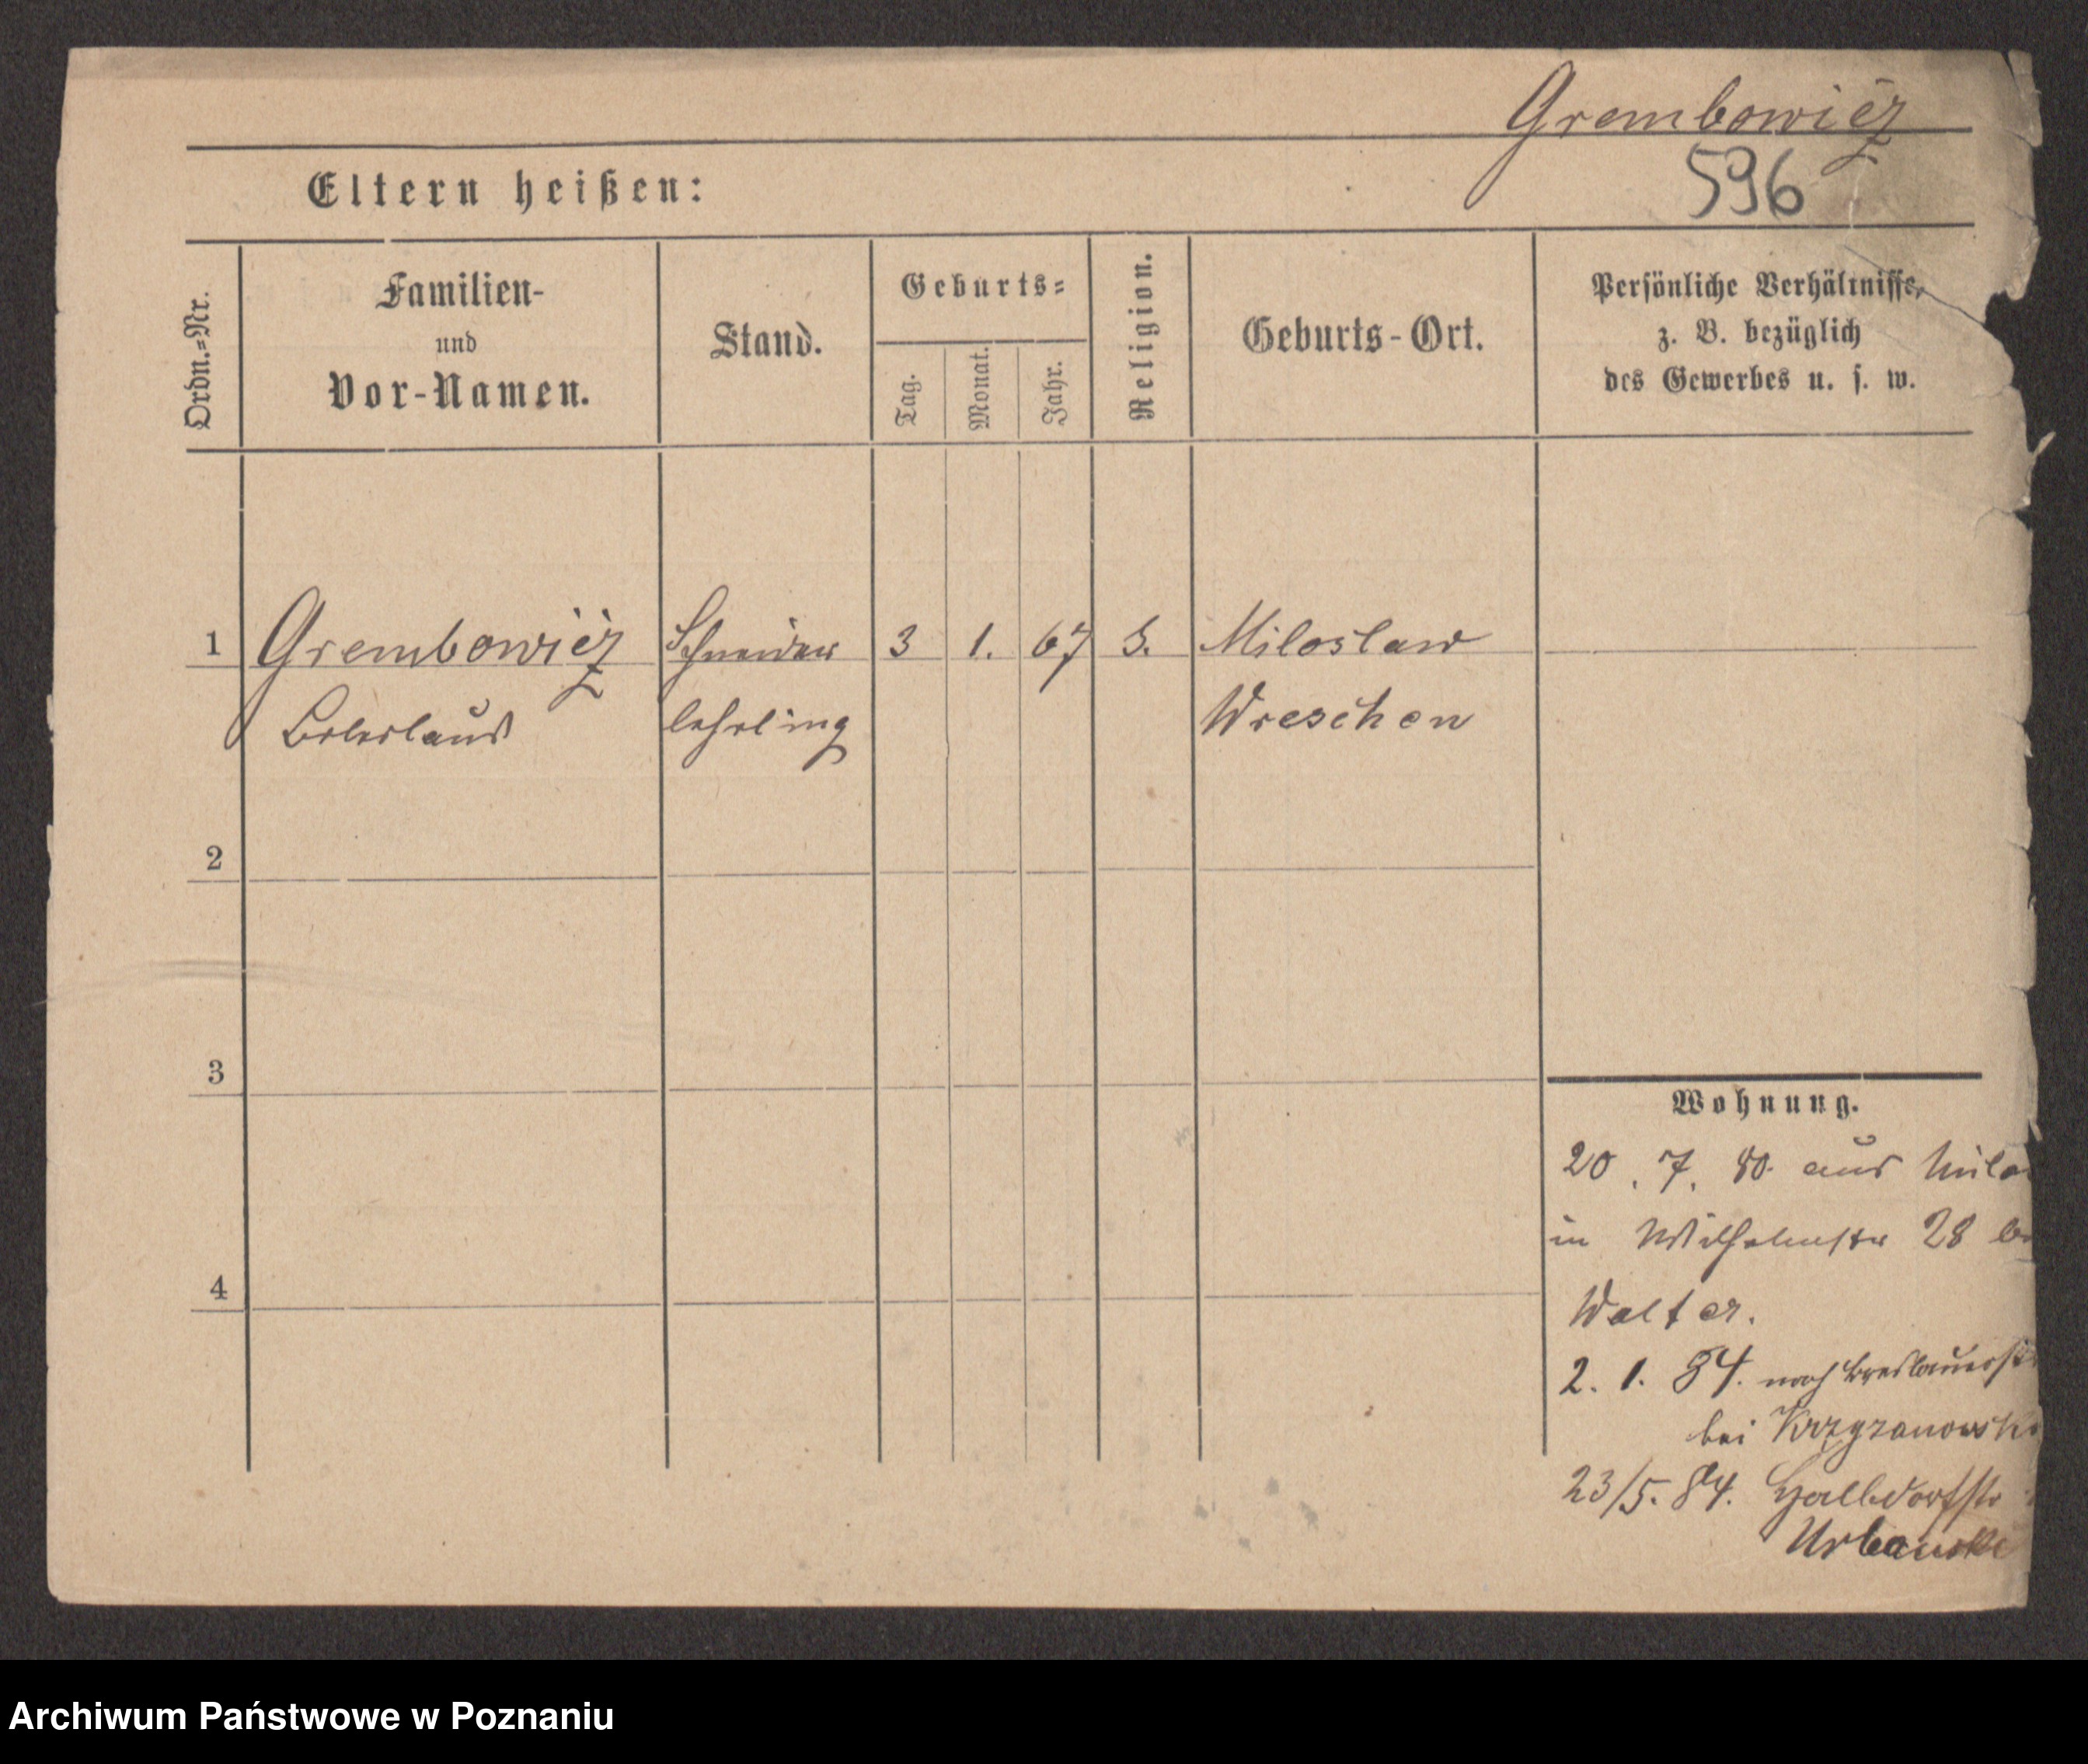 Grembowicz
596
Eltern heißen:
Ordn.=Nr.
Familien-
und
Vor-Namen.
Stand.
Geburts=
Tag.
Monat.
Jahr.
Religion.
Geburts-Ort.
Persönliche Verhältnisse,
z. B. bezüglich
des Gewerbes u. s. w.
1 Grembowicz Schneider 3 1. 67 Miloslaw
lehrling Wreschen
2
3
4
Wohnung.
20. 7. 80. aus Milo
in Wilhelmstr 28 be
Walter.
2. 1. 84. nach Breslauerstr
bei Krzyzanowski
23/5. 84. Halbdorfstr
Urbanski
Archiwum Państwowe w Poznaniu